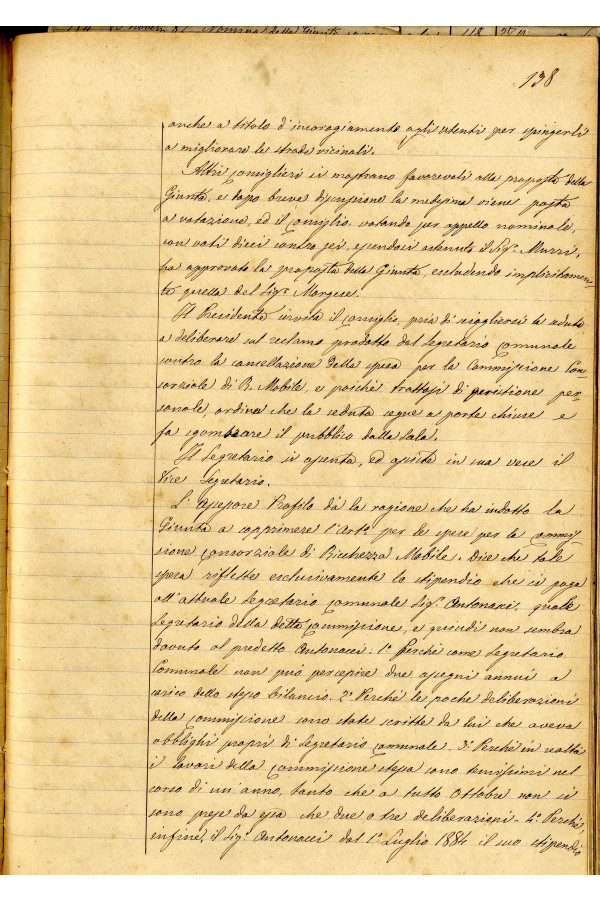 138
anche a titolo d'incoragiamento agli utenti per spingerli
a migliorare le strade vicinali.
Altri consiglieri si mostrano favorevoli alla proposta della
Giunta, e dopo breve discussione la medesima viene posta
a votazione, ed il Consiglio, votando per appello nominale,
con voti dieci contro sei, essendosi astenuto il Sigr. Muzzi,
ha approvato la proposta della Giunta, escludendo implicitamen-
te quella del Sigr. Margese.
Il Presidente invita il Consiglio, pria di sciogliersi la seduta
a deliberare sul reclamo prodotto dal Segretario Comunale
contro la cancellazione della spesa per la Commissione Con-
sorziale di R. Mobile, e poichè trattasi di petitione per-
sonale, ordina che la seduta segue a porte chiuse e
fa sgombrare il pubblico dalla Sala.
Il Segretario si assenta, ed assiste in sua vece il
Vice Segretario.
L'Assessore Profilo dà la ragione che ha indotto la
Giunta a sopprimere l'Art. per le spese per la Commis-
sione Consorziale di Ricchezza Mobile. Dice che tale
spesa riflette esclusivamente lo stipendio che si paga
all'attuale Segretario Comunale Sigr. Antonacci, quale
Segretario della detta Commissione, e quindi non sembra
dovuto al predetto Antonacci: 1° Perchè come Segretario
Comunale non può percepire due assegni annui a
carico dello stesso bilancio. 2° Perchè le poche deliberazioni
della Commissione sono state scritte da lui che aveva
obblighi proprî di Segretario Comunale. 3° Perchè in realtà
i lavori della Commissione stessa sono tenuissimi nel
corso di un anno, tanto che a tutt'Ottobre non si
sono prese da essa che due o tre deliberazioni. 4° Perchè,
infine, il Sigr. Antonacci dal 1° Luglio 1884 il suo stipendio